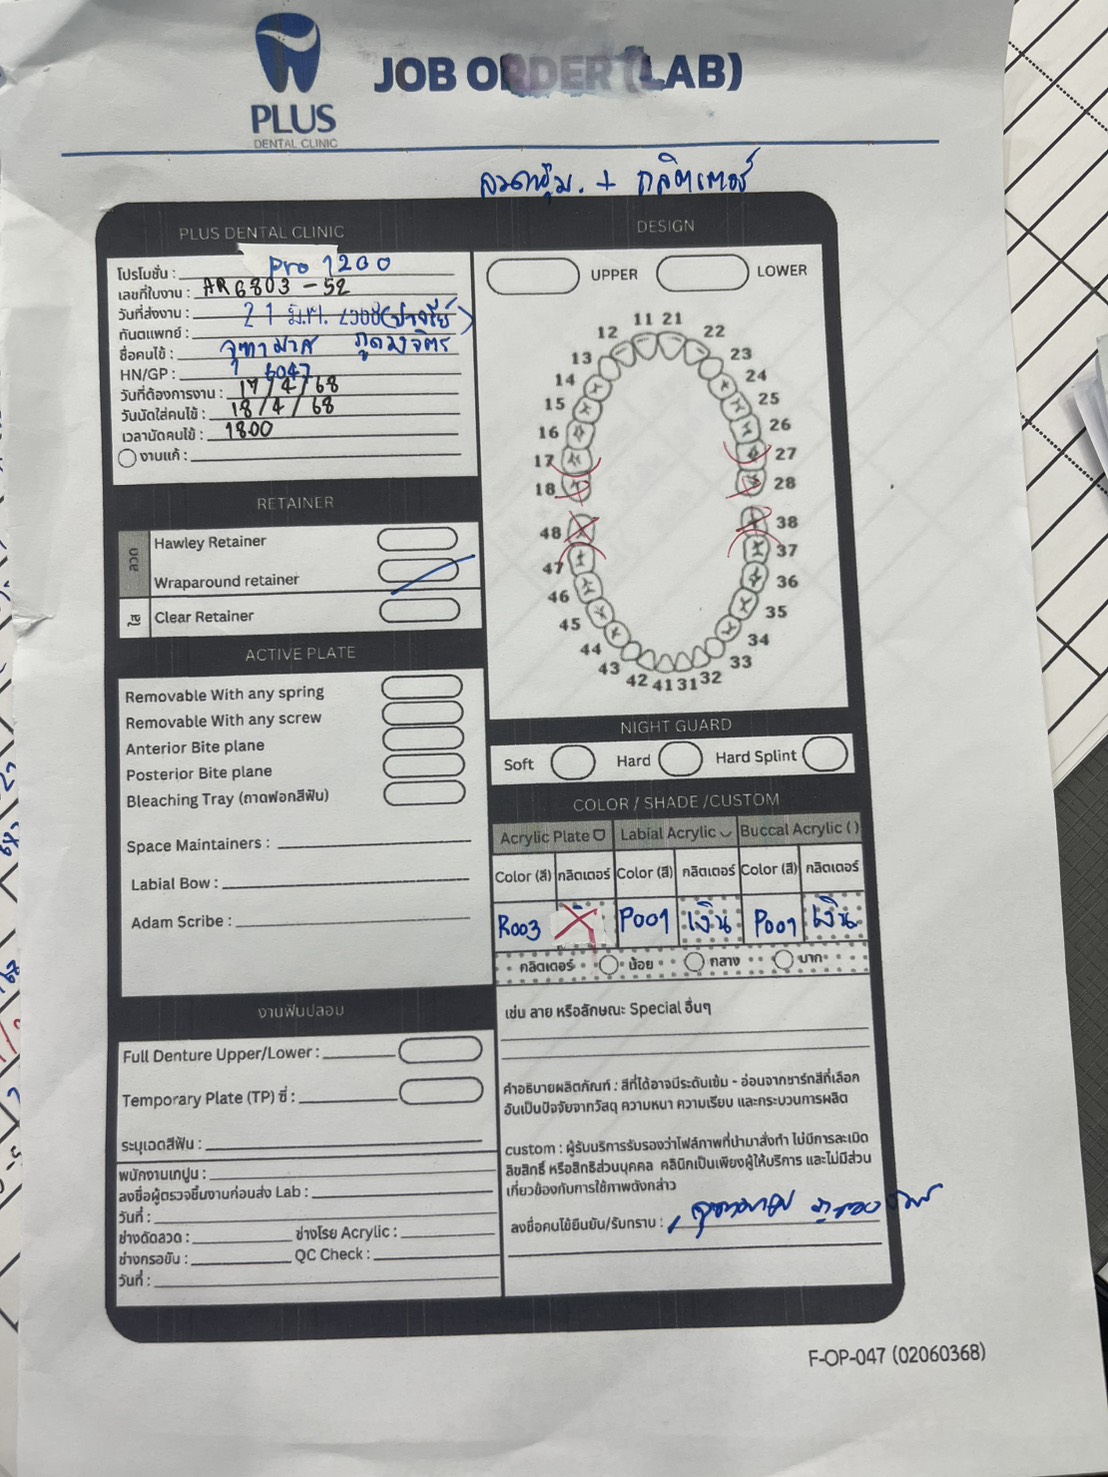 PLUS
DENTAL CLINIC
JOB ORDER (LAB)
ลวดหุ้ม. + กลิตเตอร์
PLUS DENTAL CLINIC
โปรโมชั่น : Pro 1200
เลขที่ใบงาน : AR6803-52
วันที่ส่งงาน : 21 มี.ค. 2568
ทันตแพทย์ :
ชื่อคนไข้ : จุฑามาศ
HN/GP : 6047
วันที่ต้องการงาน : 17/4/68
วันนัดใส่คนไข้ : 18/4/68
เวลานัดคนไข้ : 1800
งานแก้ :
RETAINER
ลวด
Hawley Retainer
Wraparound retainer
ใส
Clear Retainer
ACTIVE PLATE
Removable With any spring
Removable With any screw
Anterior Bite plane
Posterior Bite plane
Bleaching Tray (ถาดฟอกสีฟัน)
Space Maintainers :
Labial Bow :
Adam Scribe :
งานฟันปลอม
Full Denture Upper/Lower :
Temporary Plate (TP) ซี่ :
ระบุเฉดสีฟัน :
พนักงานเทปูน :
ลงชื่อผู้ตรวจชิ้นงานก่อนส่ง Lab :
วันที่ :
ช่างดัดลวด : ช่างโรย Acrylic :
ช่างกรอขัน : QC Check :
วันที่ :
DESIGN
UPPER LOWER
11 21
12 22
13 23
14 24
15 25
16 26
17 27
18 28
48 38
47 37
46 36
45 35
44 34
43 33
42 41 31 32
NIGHT GUARD
Soft Hard Hard Splint
COLOR / SHADE /CUSTOM
Acrylic Plate Labial Acrylic Buccal Acrylic ( )
Color (สี) กลิตเตอร์ Color (สี) กลิตเตอร์ Color (สี) กลิตเตอร์
R003 X P001 เงิน P001 เงิน
กลิตเตอร์ น้อย กลาง มาก
เช่น ลาย หรือลักษณะ Special อื่นๆ
คำอธิบายผลิตภัณฑ์ : สีที่ได้อาจมีระดับเข้ม - อ่อนจากชาร์ทสีที่เลือก
อันเป็นปัจจัยจากวัสดุ ความหนา ความเรียบ และกระบวนการผลิต
custom : ผู้รับบริการรับรองว่าไฟล์ภาพที่นำมาสั่งทำ ไม่มีการละเมิด
ลิขสิทธิ์ หรือสิทธิส่วนบุคคล คลินิกเป็นเพียงผู้ให้บริการ และไม่มีส่วน
เกี่ยวข้องกับการใช้ภาพดังกล่าว
ลงชื่อคนไข้ยืนยัน/รับทราบ :
F-OP-047 (02060368)